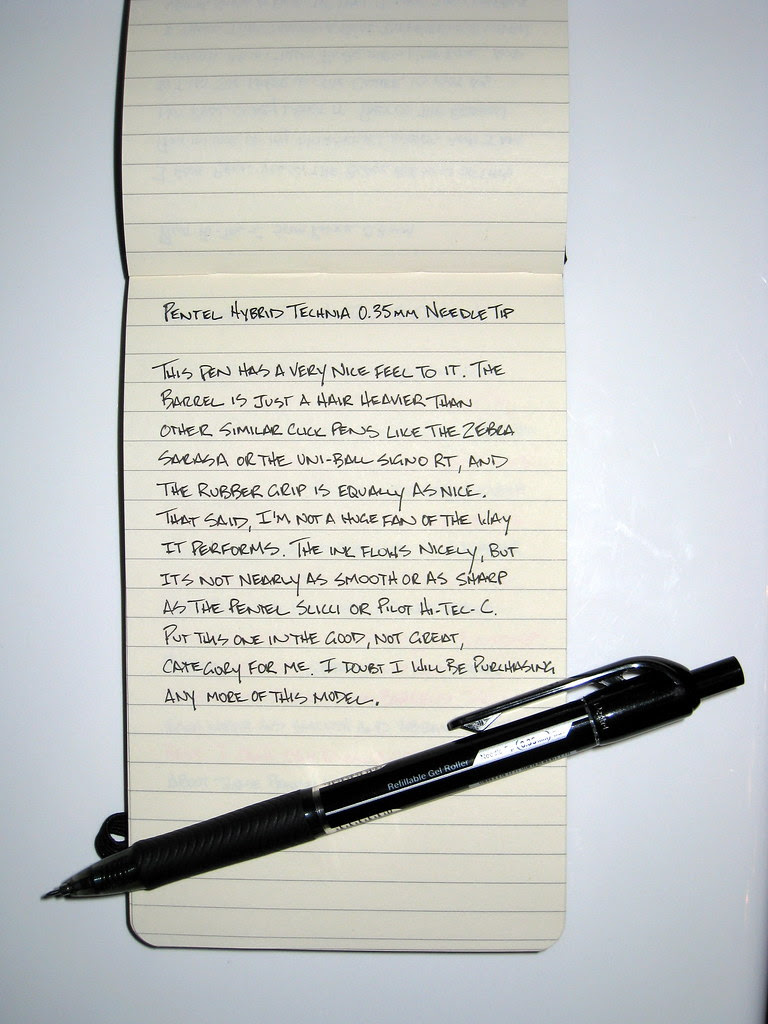 PENTEL HYBRID TECHNIA 0.35MM NEEDLE TIP
THIS PEN HAS A VERY NICE FEEL TO IT. THE
BARREL IS JUST A HAIR HEAVIER THAN
OTHER SIMILAR CLICK PENS LIKE THE ZEBRA
SARASA OR THE UNI-BALL SIGNO RT, AND
THE RUBBER GRIP IS EQUALLY AS NICE.
THAT SAID, I'M NOT A HUGE FAN OF THE WAY
IT PERFORMS. THE INK FLOWS NICELY, BUT
ITS NOT NEARLY AS SMOOTH OR AS SHARP
AS THE PENTEL SLICCI OR PILOT HI-TEC-C.
PUT THIS ONE IN THE GOOD, NOT GREAT,
CATEGORY FOR ME. I DOUBT I WILL BE PURCHASING
ANY MORE OF THIS MODEL.
Refillable Gel Roller